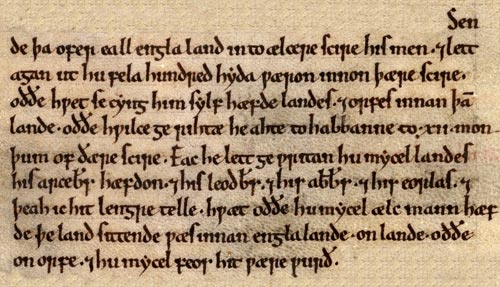 Sen
de þa ofer eall engla land into ælcere scire his men. ⁊ lett
agan ut hu fela hundred hyda ƿæron innon þære scire.
oððe hƿet se cyng him sylf hæfde landes. ⁊ orfes innan þā
lande. oððe hƿilce ge rihtæ he ahte to habbanne to .xii. mon
þum of ðære scire. Eac he lett ge ƿritan hu mycel landes
his arceb̄r hæfdon. ⁊ his leodb̄r. ⁊ his abb̄r. ⁊ his eorlas. ⁊
þeah ic hit lengre telle. hƿæt oððe hu mycel ælc mann hæf
de þe land sittende ƿæs innan engla lande. on lande. oððe
on orfe. ⁊ hu mycel feoh hit ƿære ƿurð.